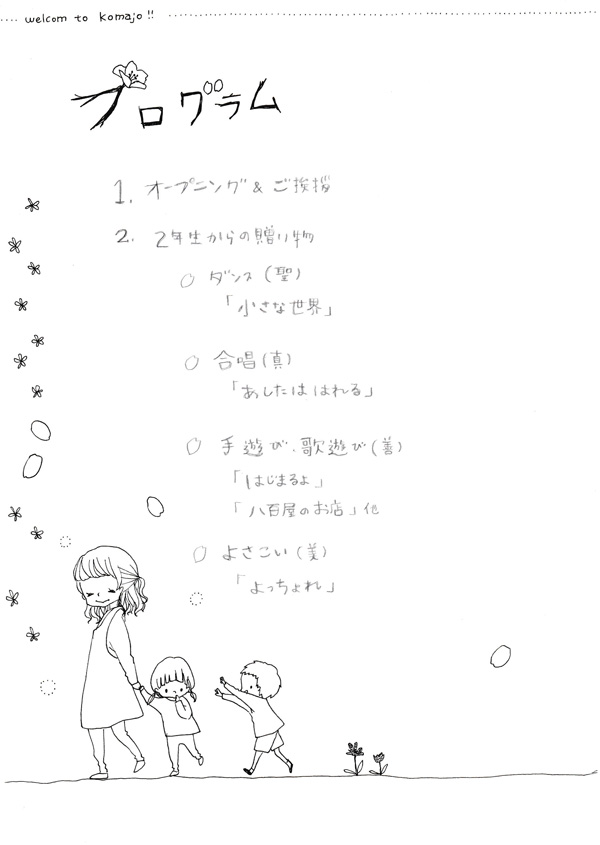 welcom to komajo!!
プログラム
1. オープニング & ご挨拶
2. 2年生からの贈り物
○ ダンス(聖)
「小さな世界」
○ 合唱(真)
「あしたははれる」
○ 手遊び、歌遊び(善)
「はじまるよ」
「八百屋のお店」他
○ よさこい(美)
「よっちょれ」